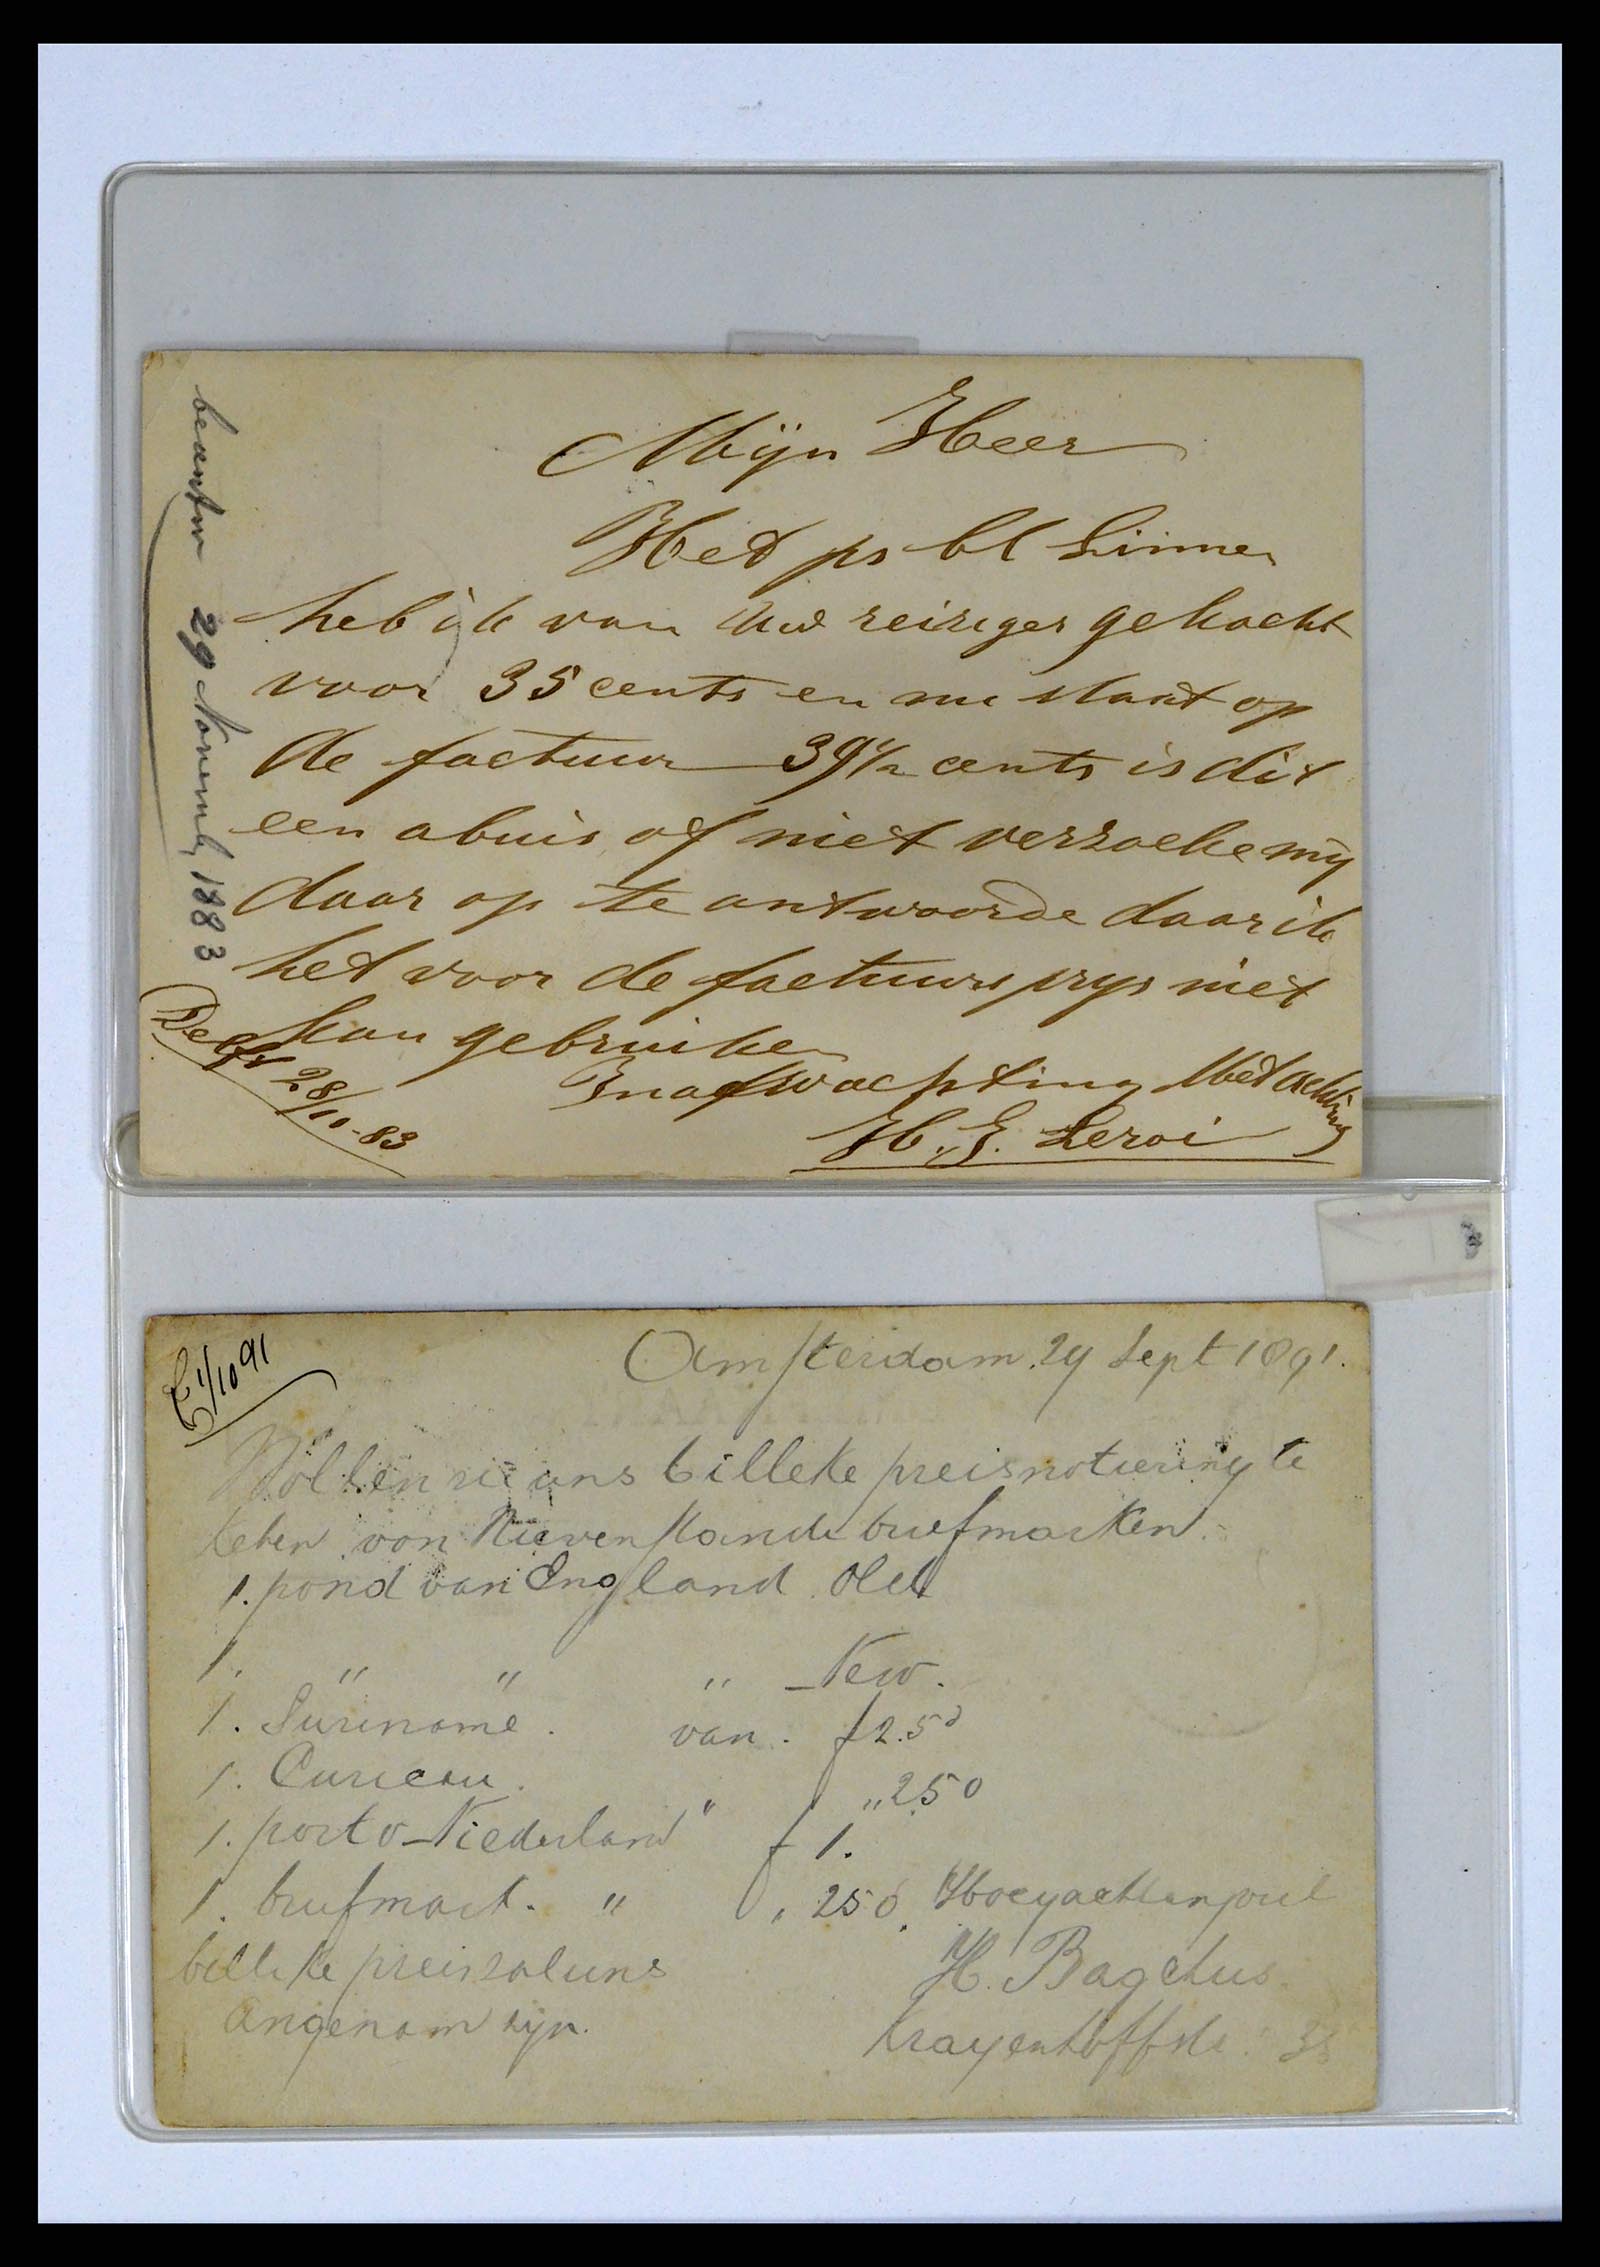 Mijn Heer
Het ps bl Linnen
heb ik van Uw reiziger gekocht
voor 35 cents en nu staat op
de factuur 39½ cents is dit
een abuis of niet verzoeke mij
daar op te antwoorde daar ik
het voor de factuurs prys niet
kan gebruiken
Inafwachting Met achting
H. J. Leroi
Delft 28/11-83
beantw 29 Novemb 1883
1/10 91
Amsterdam 29 Sept 1891.
Wollen sie uns billeke preisnotiering te
keben von briefmarken
1. pond van England Old
1. " " " New.
1. Suriname. van. f2.50
1. Curicau. " 250
1. porto Niederland " f 1.
1. briefmark. " " 250. Hoogachtenpriel
billeke preis zal uns
angenam zyn.
H. Bagchus
Krayenhoffstr. 35